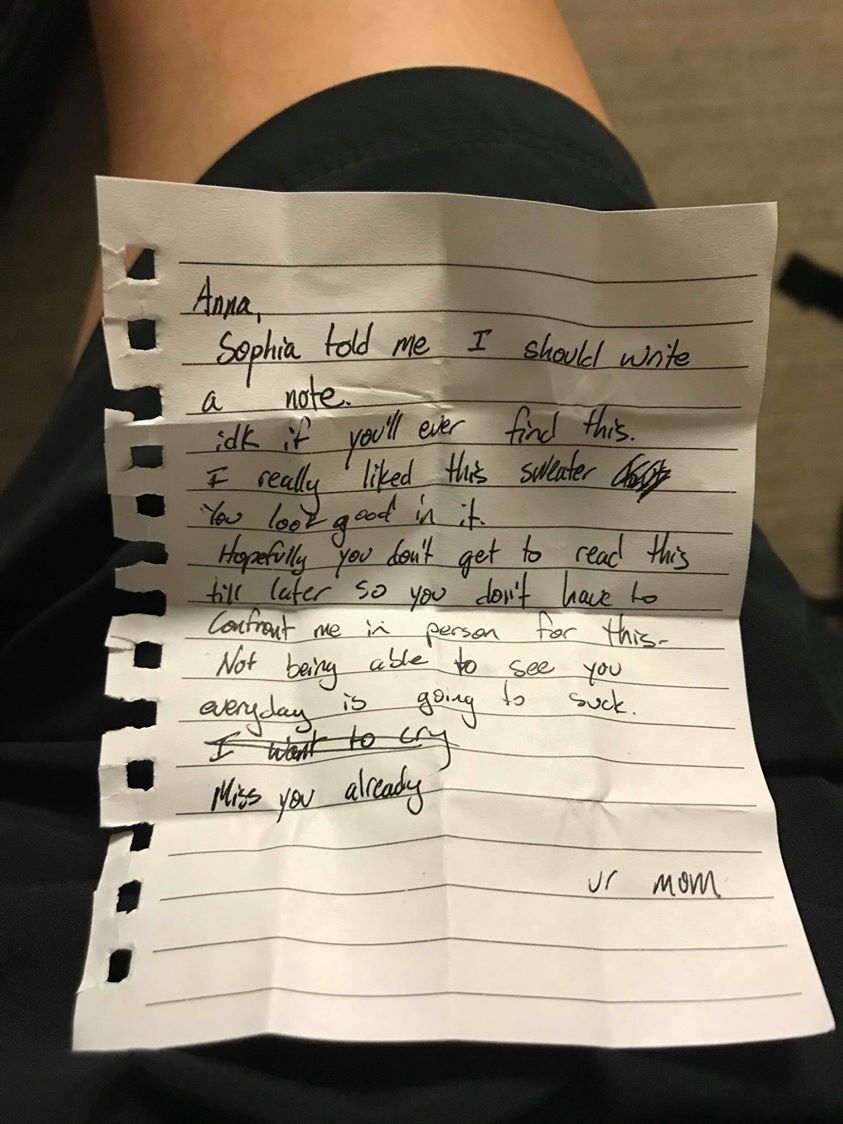 Anna,
Sophia told me I should write
a note.
idk if you'll ever find this.
I really liked this sweater
You look good in it.
Hopefully you don't get to read this
till later so you don't have to
Confront me in person for this.
Not being able to see you
everyday is going to suck.
I want to cry
Miss you already
ur mom